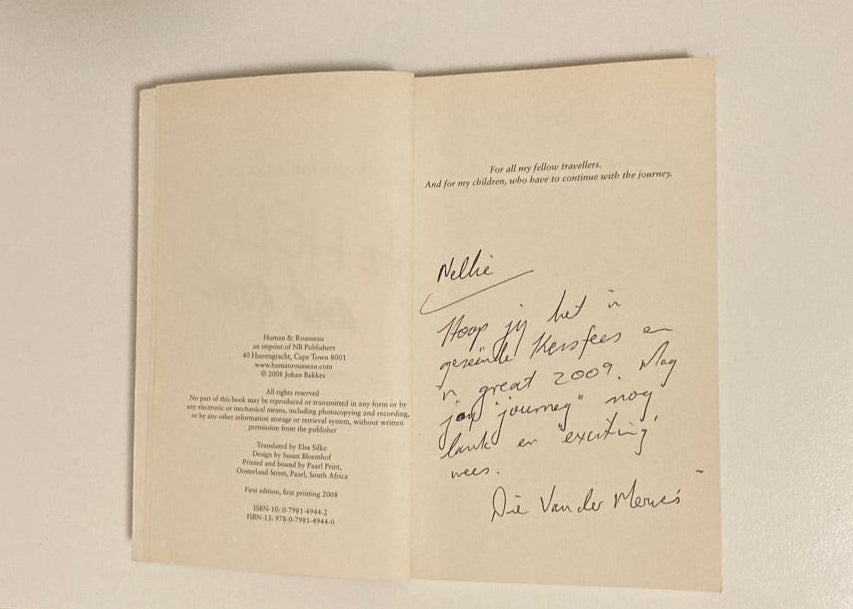 Human & Rousseau
an imprint of NB Publishers
40 Heerengracht, Cape Town 8001
www.humanrousseau.com
© 2008 Johan Bakkes
All rights reserved
No part of this book may be reproduced or transmitted in any form or by
any electronic or mechanical means, including photocopying and recording,
or by any other information storage or retrieval system, without written
permission from the publisher
Translated by Elsa Silke
Design by Susan Bloemhof
Printed and bound by Paarl Print,
Oosterland Street, Paarl, South Africa
First edition, first printing 2008
ISBN-10: 0-7981-4944-2
ISBN-13: 978-0-7981-4944-0
For all my fellow travellers.
And for my children, who have to continue with the journey.
Nellie
Hoop jy het 'n
geseënde Kersfees en
'n great 2009. Mag
jou "journey" nog
lank en exciting
wees.
Die Van der Merwe's